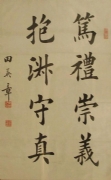 篤禮崇義
抱淋守真
田英章